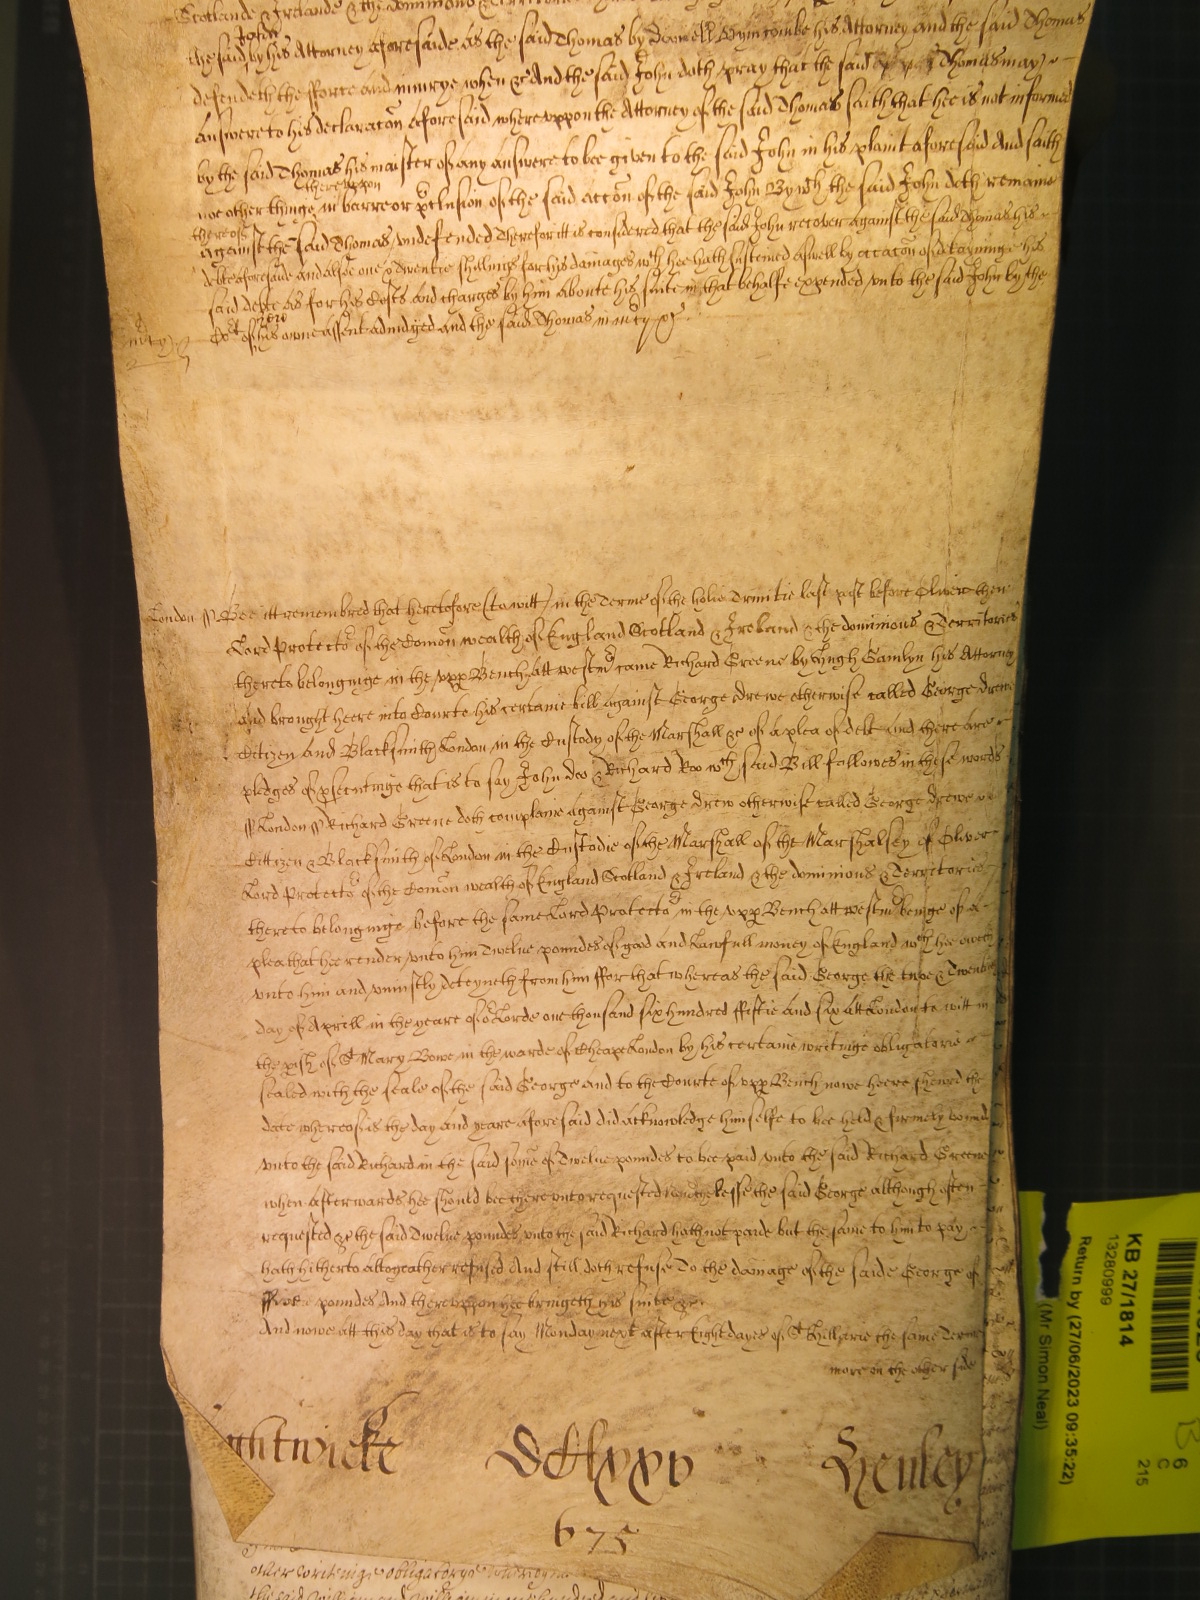 Scotlande & Irelande & the dominions & Territories
the said John by his Attorney aforesaide as the said Thomas by Darnell Wyncombe his Attorney and the said Thomas
defendeth the fforce and iniurye when &c And the said John doth pray that the said Thomas may
Answere to his declaracon aforesaid whereuppon the Attorney of the said Thomas saith that hee is not informed
by the said Thomas his maister of any answere to bee given to the said John in his plaint aforesaid And saith
noe other thinge in barre or pclusion of the said accon of the said John By wch the said John doth remaine
thereuppon
thereof
against the said Thomas undefended Therefore itt is considered that the said John recover against the said Thomas his
debte aforesaide and alsoe one & twentie shillings for his damages wch hee hath susteined aswell by occacon of detayninge his
said debte as for his Costs and charges by him aboute his suite in that behalfe expended unto the said John by the
Cort here of his owne assent adiudged and the said Thomas in mcy &c
mcy
London ss Bee itt remembred that heretofore (to witt) in the Terme of the holie Trinitie last past before Oliver then
Lord Protector of the Comon wealth of England Scotland & Ireland & the dominions & Territories
thereto belonginge in the upp Bench att Westmr came Richard Greene by Hugh Hamlyn his Attorney
and brought heere into Courte his certaine bill against George drewe otherwise called George drewe
Citizen and Blacksmith London in the Custody of the Marshall &c of a plea of debt and there are
pledges of psecutinge that is to say John doo & Richard Roo wch said Bill followes in these words
ss London ss Richard Greene doth complaine against George drew otherwise called George drewe
Cittizen & Blacksmith of London in the Custodie of the Marshall of the Marshalsey of Oliver
Lord Protector of the Comon wealth of England Scotland & Ireland & the dominions & Territories
thereto belonginge before the same Lord Protector in the upp Bench att Westmr beinge of a
plea that hee render unto him Twelve poundes of good and Lawfull money of England wch hee oweth
unto him and uniustly deteyneth from him ffor that whereas the said George the twoe & Twentieth
day of Aprill in the yeare of or Lorde one thousand six hundred ffiftie and six att London to witt in
the pish of St Mary Bowe in the warde of Cheape London by his certaine writinge obligatorie
sealed with the seale of the said George and to the Courte of upp Bench nowe heere shewed the
date whereof is the day and yeare aforesaid did acknowledge himselfe to bee held & firmely bound
unto the said Richard in the said some of Twelve poundes to bee paid unto the said Richard Greene
when afterwards hee should bee thereunto requested nevthelesse the said George although often
requested &c the said Twelve poundes unto the said Richard hath not paide but the same to him to pay
hath hitherto altogeather refused And still doth refuse To the damage of the saide George of
ffive poundes And thereuppon hee bringeth his suite &c
And nowe att this day that is to say Monday next after Eight dayes of St Hillarie the same Terme
more on the other side
ghtwicke DCLxxv Henley
675
other writinge obligatorye
KB 27/1814
13280999
Return by (27/06/2023 09:35:22)
(Mr Simon Neal)
6
C
215